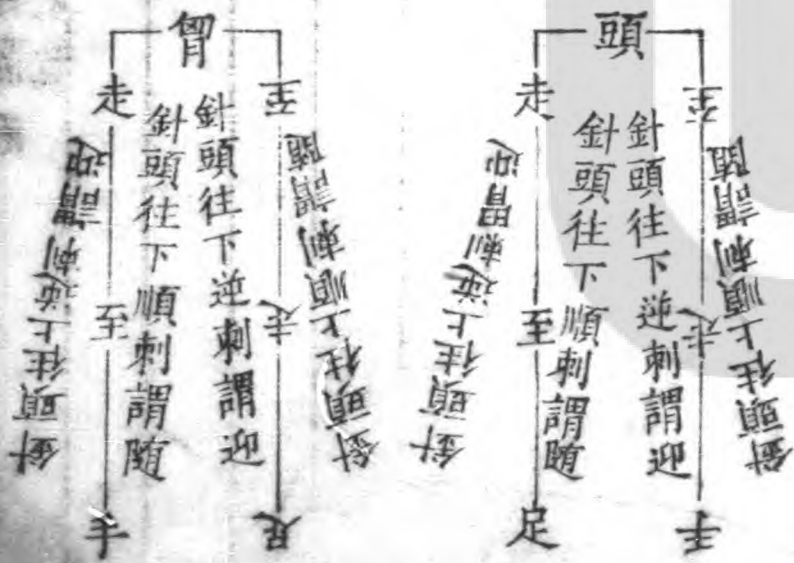 頭
針頭往上順刺謂随
至
走
手
針頭往下逆刺謂迎
針頭往下順刺謂随
走
至
足
針頭往上逆刺胃迎
胷
針頭往上順刺謂随
至
走
足
針頭往下逆刺謂迎
針頭往下順刺謂随
走
至
手
針頭往上逆刺謂迎